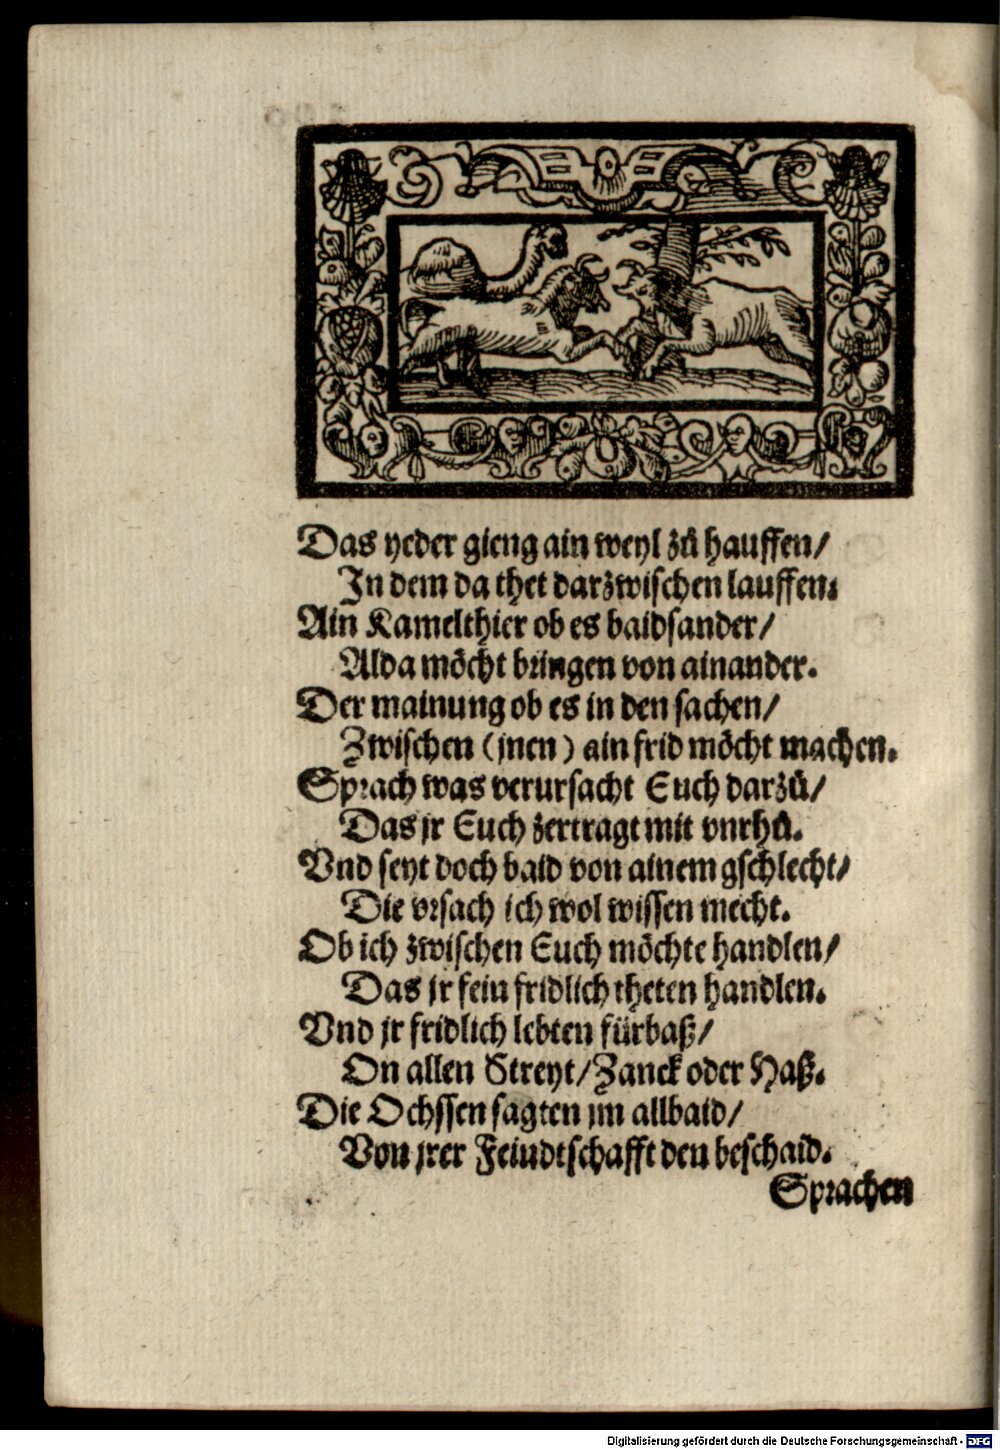 Das yeder gieng ain weyl zů hauffen/
In dem da thet darzwischen lauffen.
Ain Kamelthier ob es baidsander/
Alda möcht bringen von ainander.
Der mainung ob es in den sachen/
Zwischen (jnen) ain frid möcht machen.
Sprach was verursacht Euch darzů/
Das jr Euch zertragt mit vnrhů.
Vnd seyt doch baid von ainem gschlecht/
Die vrsach ich wol wissen mecht.
Ob ich zwischen Euch möchte handlen/
Das jr fein fridlich theten handlen.
Vnd jr fridlich lebten fürbaß/
On allen Streyt/Zanck oder Haß.
Die Ochssen sagten jm allbaid/
Von jrer Feindtschafft den beschaid.
Sprachen
Digitalisierung gefördert durch die Deutsche Forschungsgemeinschaft - DFG